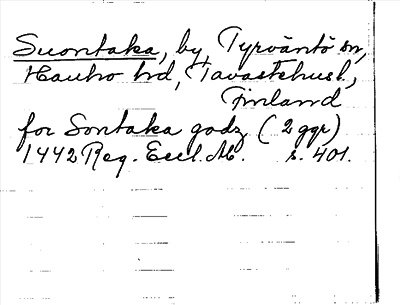 Suontaka, by, Tyrväntö sn,
Hauho hd, Tavastehusl.,
Finland
for Sontaka godz (2 ggr)
1442 Reg. Eccl. Ab. s. 401.